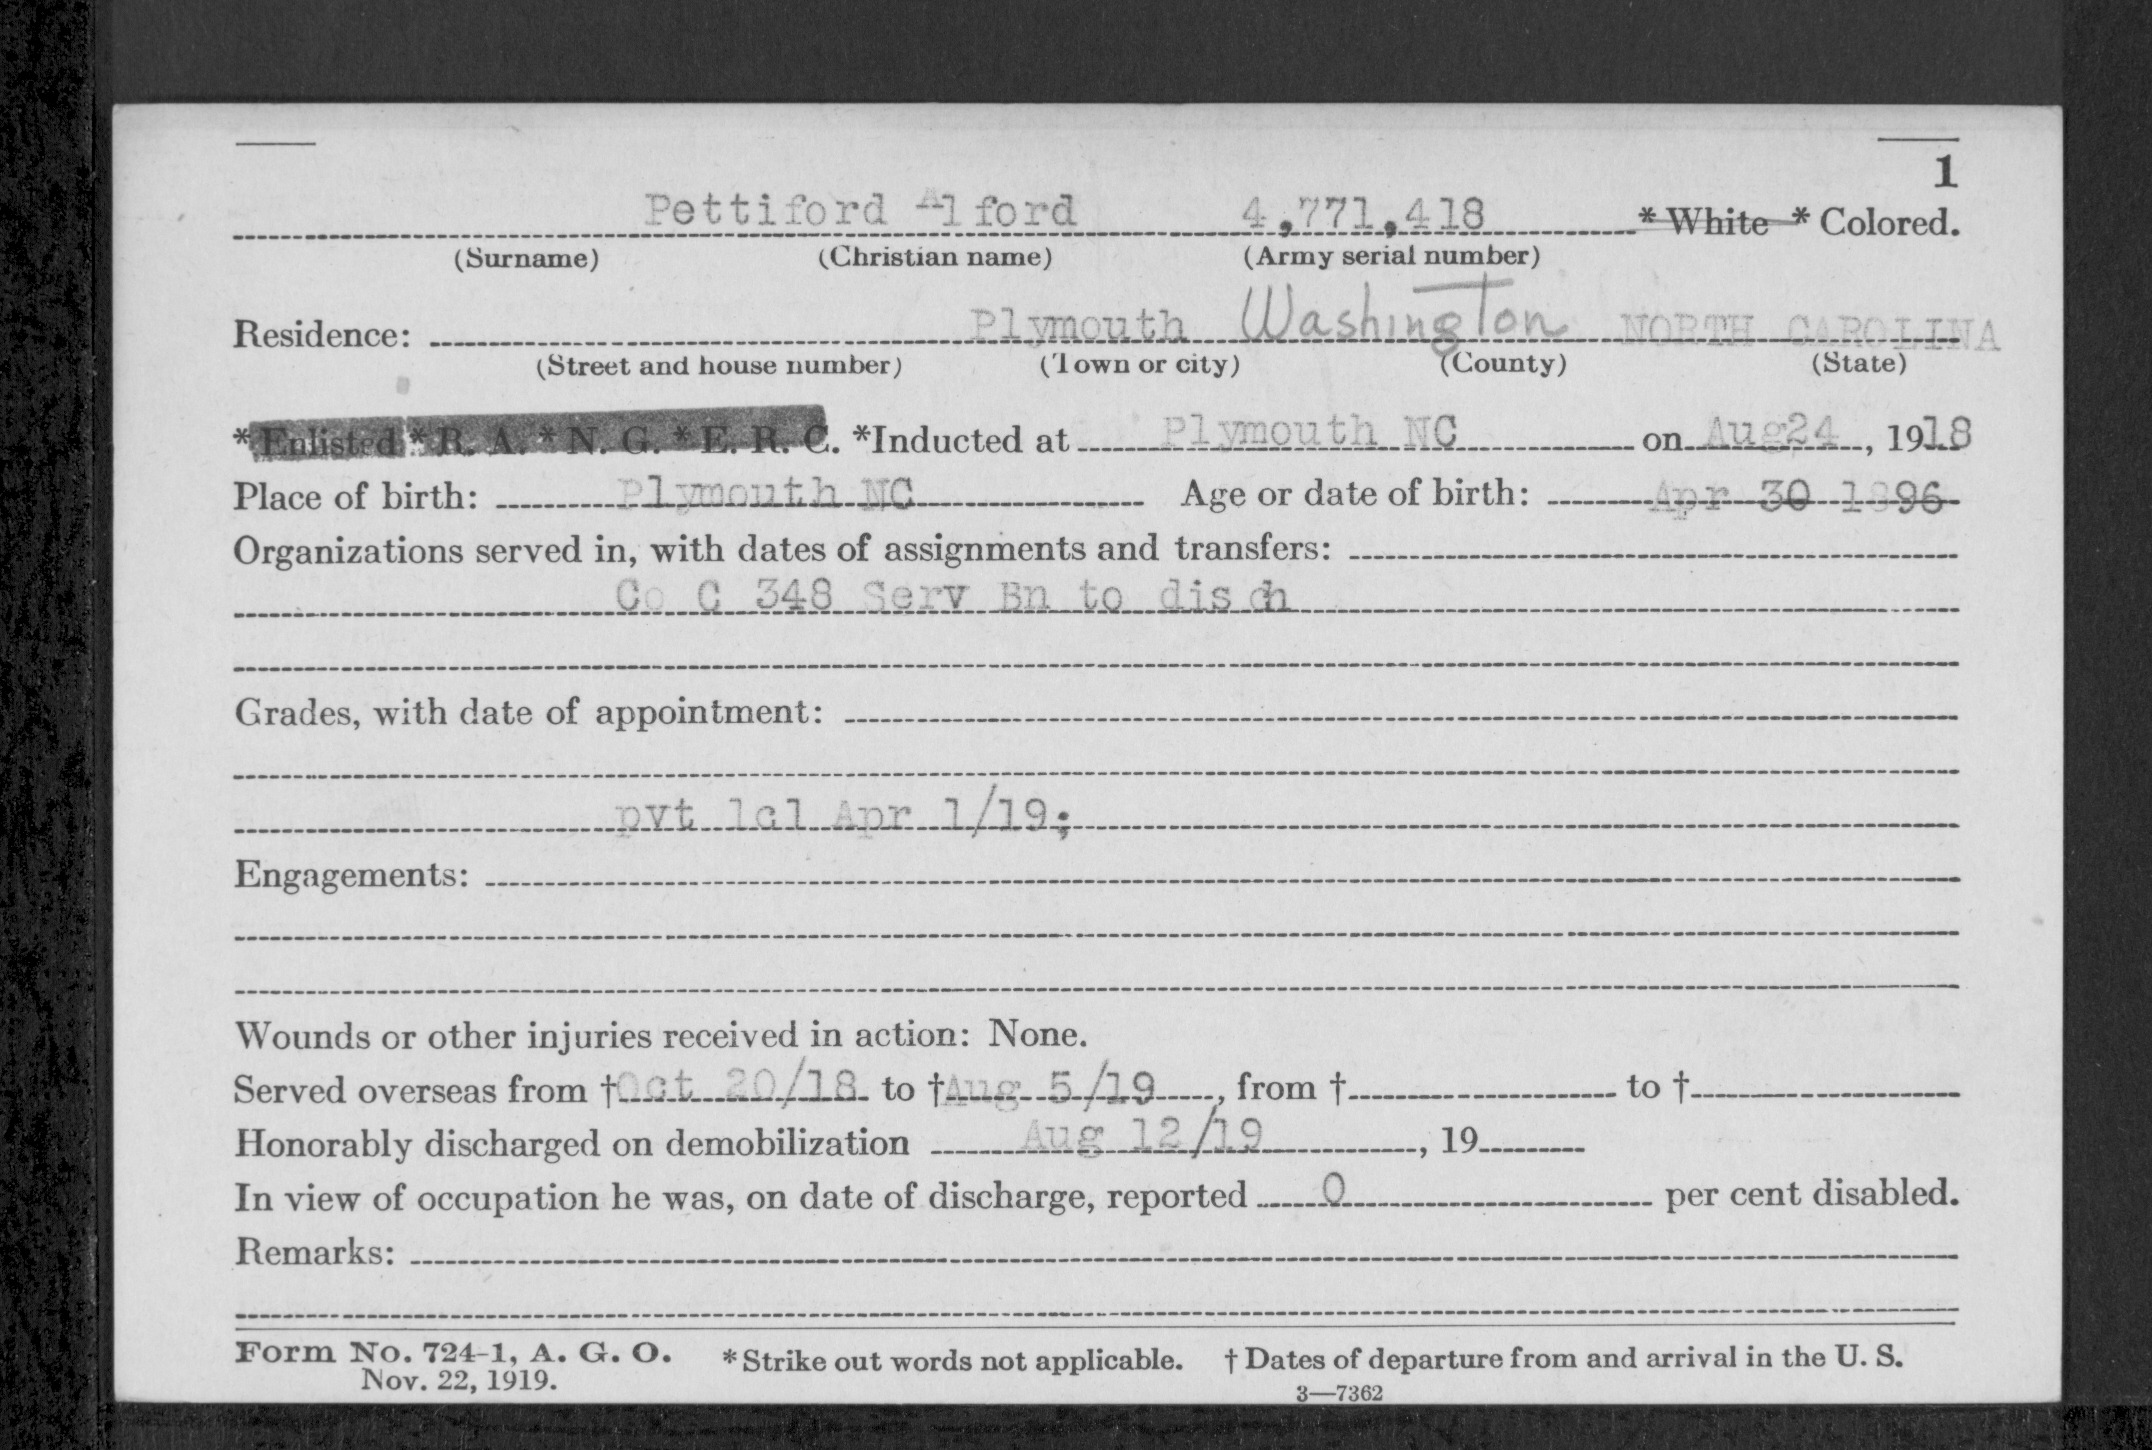 1
Pettiford Alford 4,771,418 * White * Colored.
(Surname) (Christian name) (Army serial number)
Residence: Plymouth Washington NORTH CAROLINA
(Street and house number) (Town or city) (County) (State)
*Enlisted *R. A. *N. G. *E. R. C. *Inducted at Plymouth NC on Aug24, 1918
Place of birth: Plymouth NC Age or date of birth: Apr 30 1896
Organizations served in, with dates of assignments and transfers:
Co C 348 Serv Bn to disch
Grades, with date of appointment:
pvt lcl Apr 1/19;
Engagements:
Wounds or other injuries received in action: None.
Served overseas from †Oct 20/18 to †Aug 5/19, from † to †
Honorably discharged on demobilization Aug 12/19, 19
In view of occupation he was, on date of discharge, reported 0 per cent disabled.
Remarks:
Form No. 724-1, A. G. O. *Strike out words not applicable. † Dates of departure from and arrival in the U. S.
Nov. 22, 1919. 3—7362